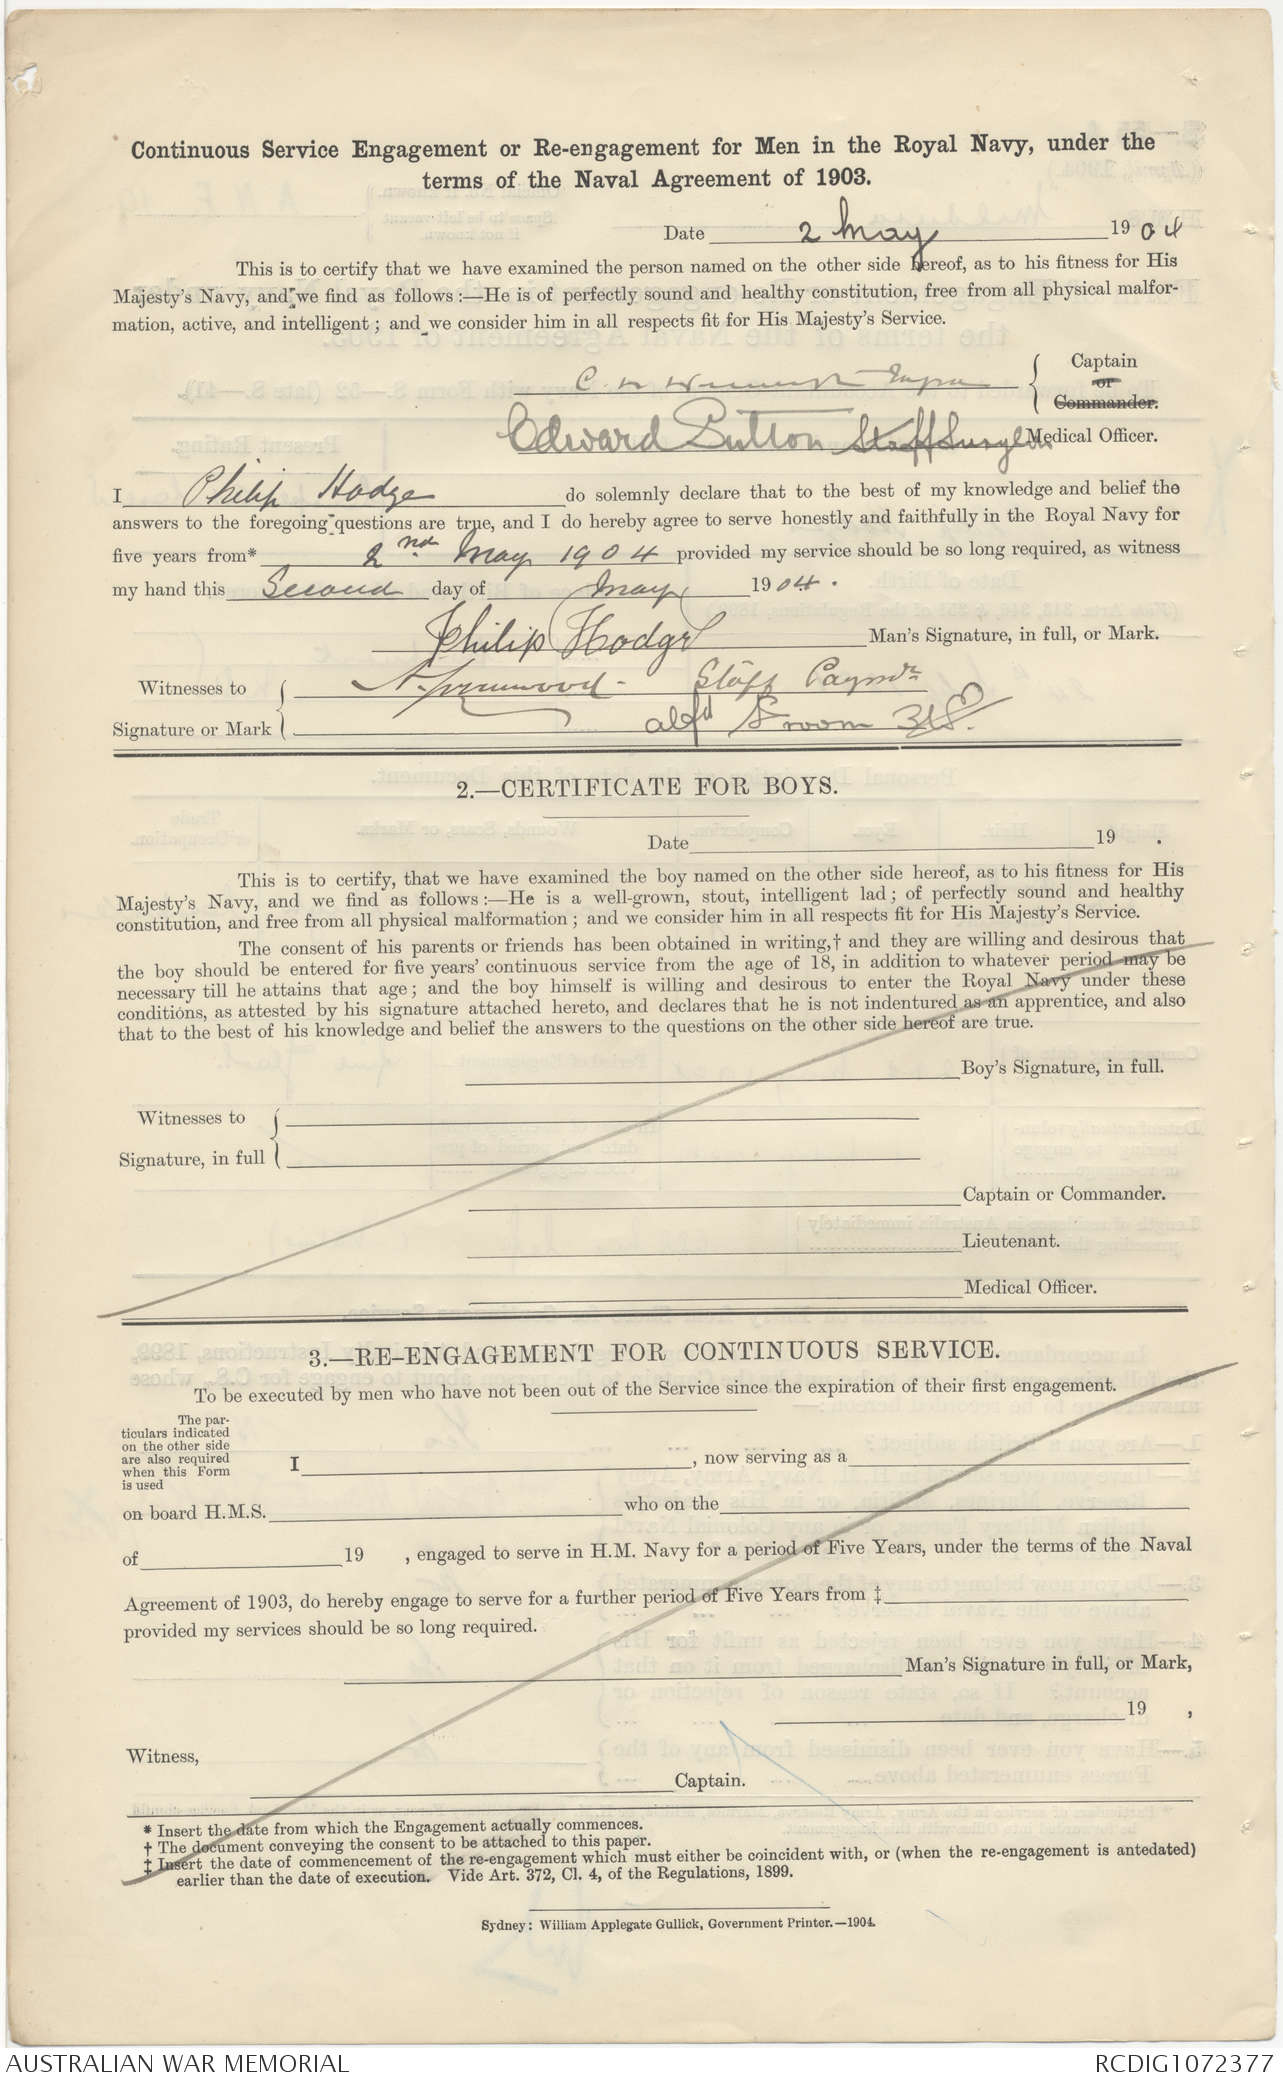 Continuous Service Engagement or Re-engagement for Men in the Royal Navy, under the
terms of the Naval Agreement of 1903.
Date 2 May 1904
This is to certify that we have examined the person named on the other side hereof, as to his fitness for His
Majesty's Navy, and we find as follows:—He is of perfectly sound and healthy constitution, free from all physical malfor-
mation, active, and intelligent; and we consider him in all respects fit for His Majesty's Service.
Captain
or
Commander.
Edward Sutton Staff Surgeon Medical Officer.
I Philip Hodge do solemnly declare that to the best of my knowledge and belief the
answers to the foregoing questions are true, and I do hereby agree to serve honestly and faithfully in the Royal Navy for
five years from* 2nd May 1904 provided my service should be so long required, as witness
my hand this Second day of May 1904.
Philip Hodge Man's Signature, in full, or Mark.
Witnesses to
Staff Paymr
Signature or Mark
Alfd
2.—CERTIFICATE FOR BOYS.
Date 19 .
This is to certify, that we have examined the boy named on the other side hereof, as to his fitness for His
Majesty's Navy, and we find as follows:—He is a well-grown, stout, intelligent lad; of perfectly sound and healthy
constitution, and free from all physical malformation; and we consider him in all respects fit for His Majesty's Service.
The consent of his parents or friends has been obtained in writing,† and they are willing and desirous that
the boy should be entered for five years' continuous service from the age of 18, in addition to whatever period may be
necessary till he attains that age; and the boy himself is willing and desirous to enter the Royal Navy under these
conditions, as attested by his signature attached hereto, and declares that he is not indentured as an apprentice, and also
that to the best of his knowledge and belief the answers to the questions on the other side hereof are true.
Boy's Signature, in full.
Witnesses to
Signature, in full
Captain or Commander.
Lieutenant.
Medical Officer.
3.—RE-ENGAGEMENT FOR CONTINUOUS SERVICE.
To be executed by men who have not been out of the Service since the expiration of their first engagement.
The par-
ticulars indicated
on the other side
are also required
when this Form
is used
I , now serving as a
on board H.M.S. who on the
of 19 , engaged to serve in H.M. Navy for a period of Five Years, under the terms of the Naval
Agreement of 1903, do hereby engage to serve for a further period of Five Years from ‡
provided my services should be so long required.
Man's Signature in full, or Mark,
19 ,
Witness,
Captain.
* Insert the date from which the Engagement actually commences.
† The document conveying the consent to be attached to this paper.
‡ Insert the date of commencement of the re-engagement which must either be coincident with, or (when the re-engagement is antedated)
earlier than the date of execution. Vide Art. 372, Cl. 4, of the Regulations, 1899.
Sydney: William Applegate Gullick, Government Printer.—1904.
AUSTRALIAN WAR MEMORIAL
RCDIG1072377